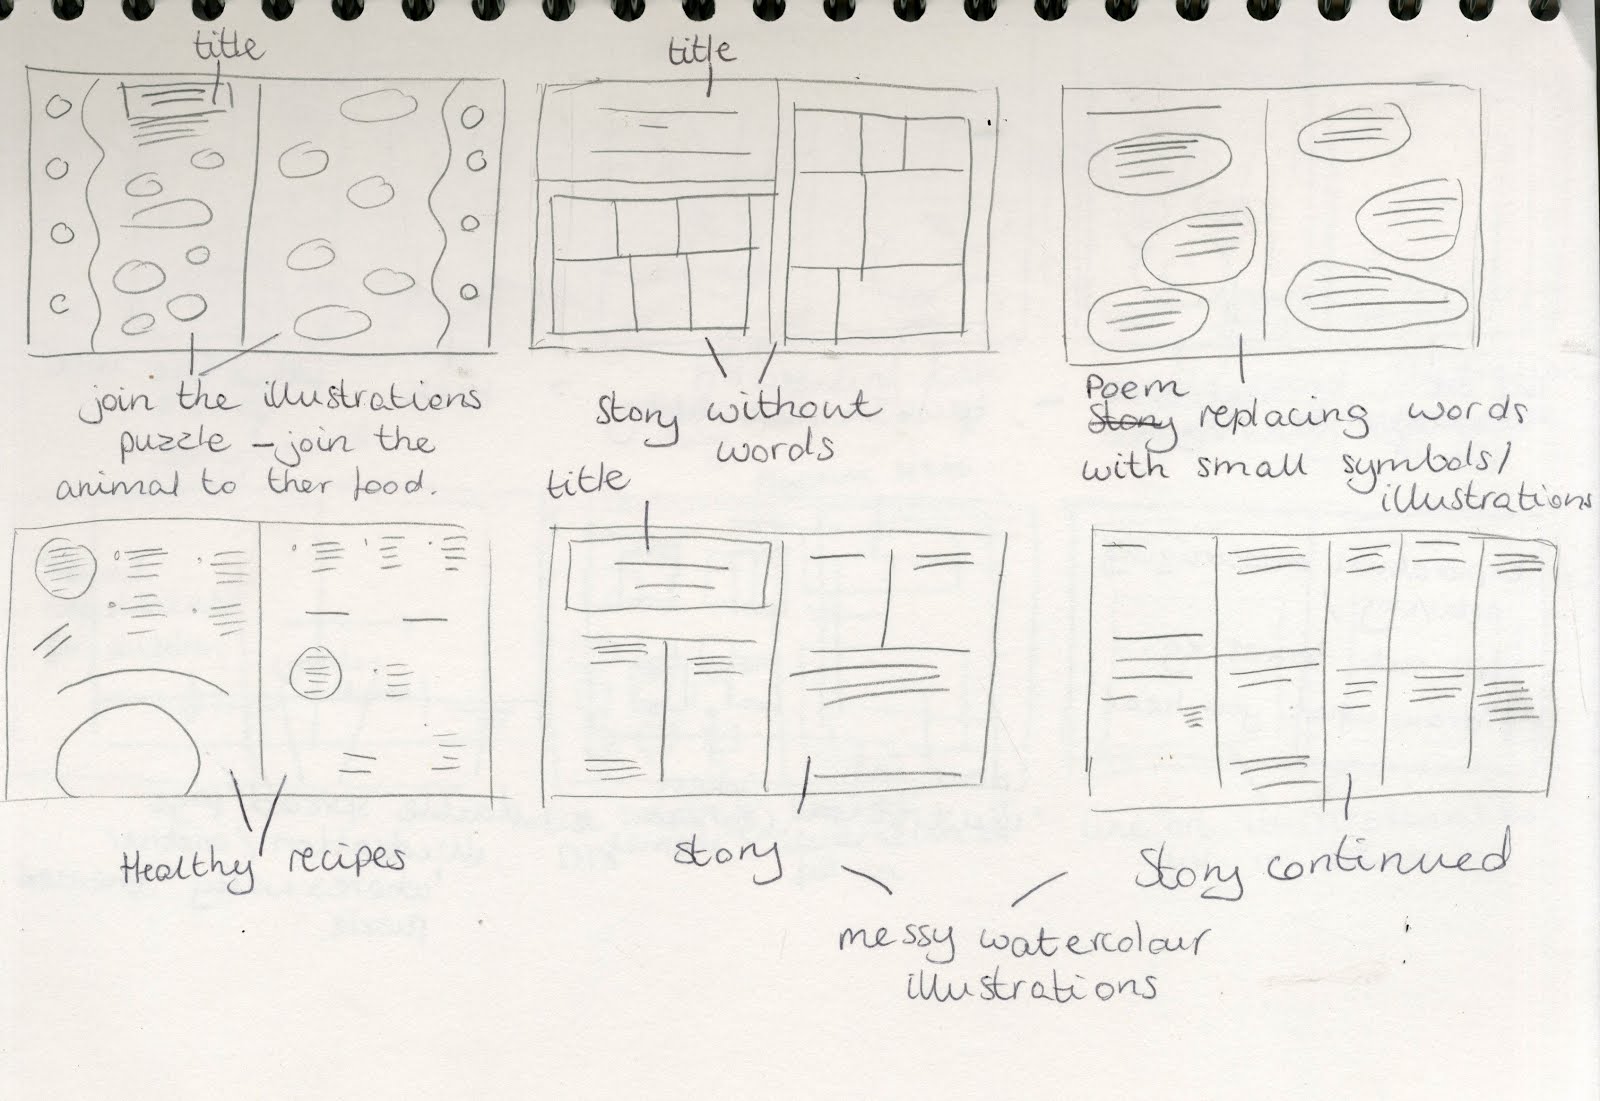 title
title
join the illustrations
puzzle – join the
animal to ther food.
story without
words
Poem
Story replacing words
with small symbols/
illustrations
title
Healthy recipes
story
Story continued
messy watercolour
illustrations